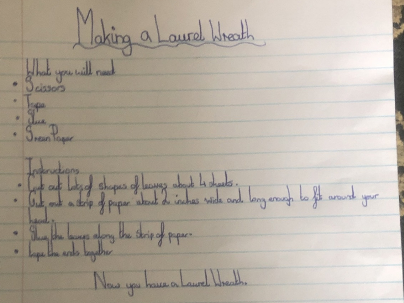 Making a Laurel Wreath
What you will need
• Scissors
• Tape
• Glue
• Green Paper
Instructions
• Cut out lots of shapes of leaves about 4 sheets.
• Cut out a strip of paper about 2 inches wide and long enough to fit around your
head.
• Glue the leaves along the strip of paper.
• tape the ends together
Now you have a Laurel Wreath.